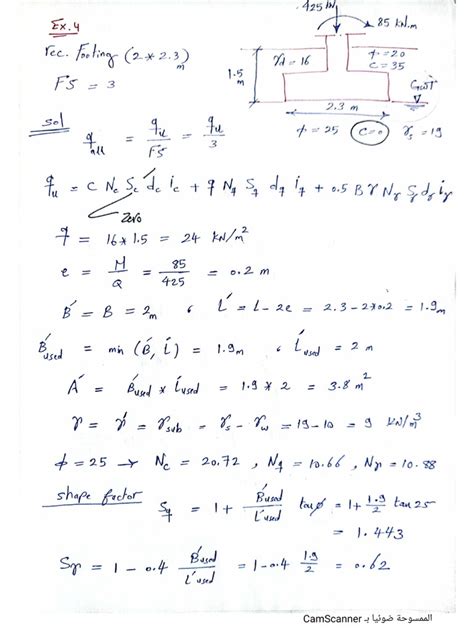 Ex. 4
rec. Footing (2*2.3) m
FS = 3
425 kN
85 kN.m
γd = 16
φ = 20
C = 35
1.5 m
G.W.T
2.3 m
φ = 25 C=0 γs = 19
sol
q all = qu / FS = qu / 3
qu = C Nc Sc dc ic + q Nq Sq dq iq + 0.5 B γ Nγ Sγ dγ iγ
Zero
q = 16*1.5 = 24 kN/m²
e = M / Q = 85 / 425 = 0.2 m
B' = B = 2m , L' = L - 2e = 2.3 - 2*0.2 = 1.9m
B'used = min (B', L') = 1.9m , L'used = 2 m
A' = B'used * L'used = 1.9 * 2 = 3.8 m²
γ = γ' = γsub = γs - γw = 19 - 10 = 9 kN/m³
φ = 25 → Nc = 20.72 , Nq = 10.66 , Nγ = 10.88
shape factor
Sq = 1 + B'used / L'used tan φ = 1 + 1.9 / 2 tan 25
= 1.443
Sγ = 1 - 0.4 B'used / L'used = 1 - 0.4 1.9 / 2 = 0.62
الممسوحة ضوئيا بـ CamScanner